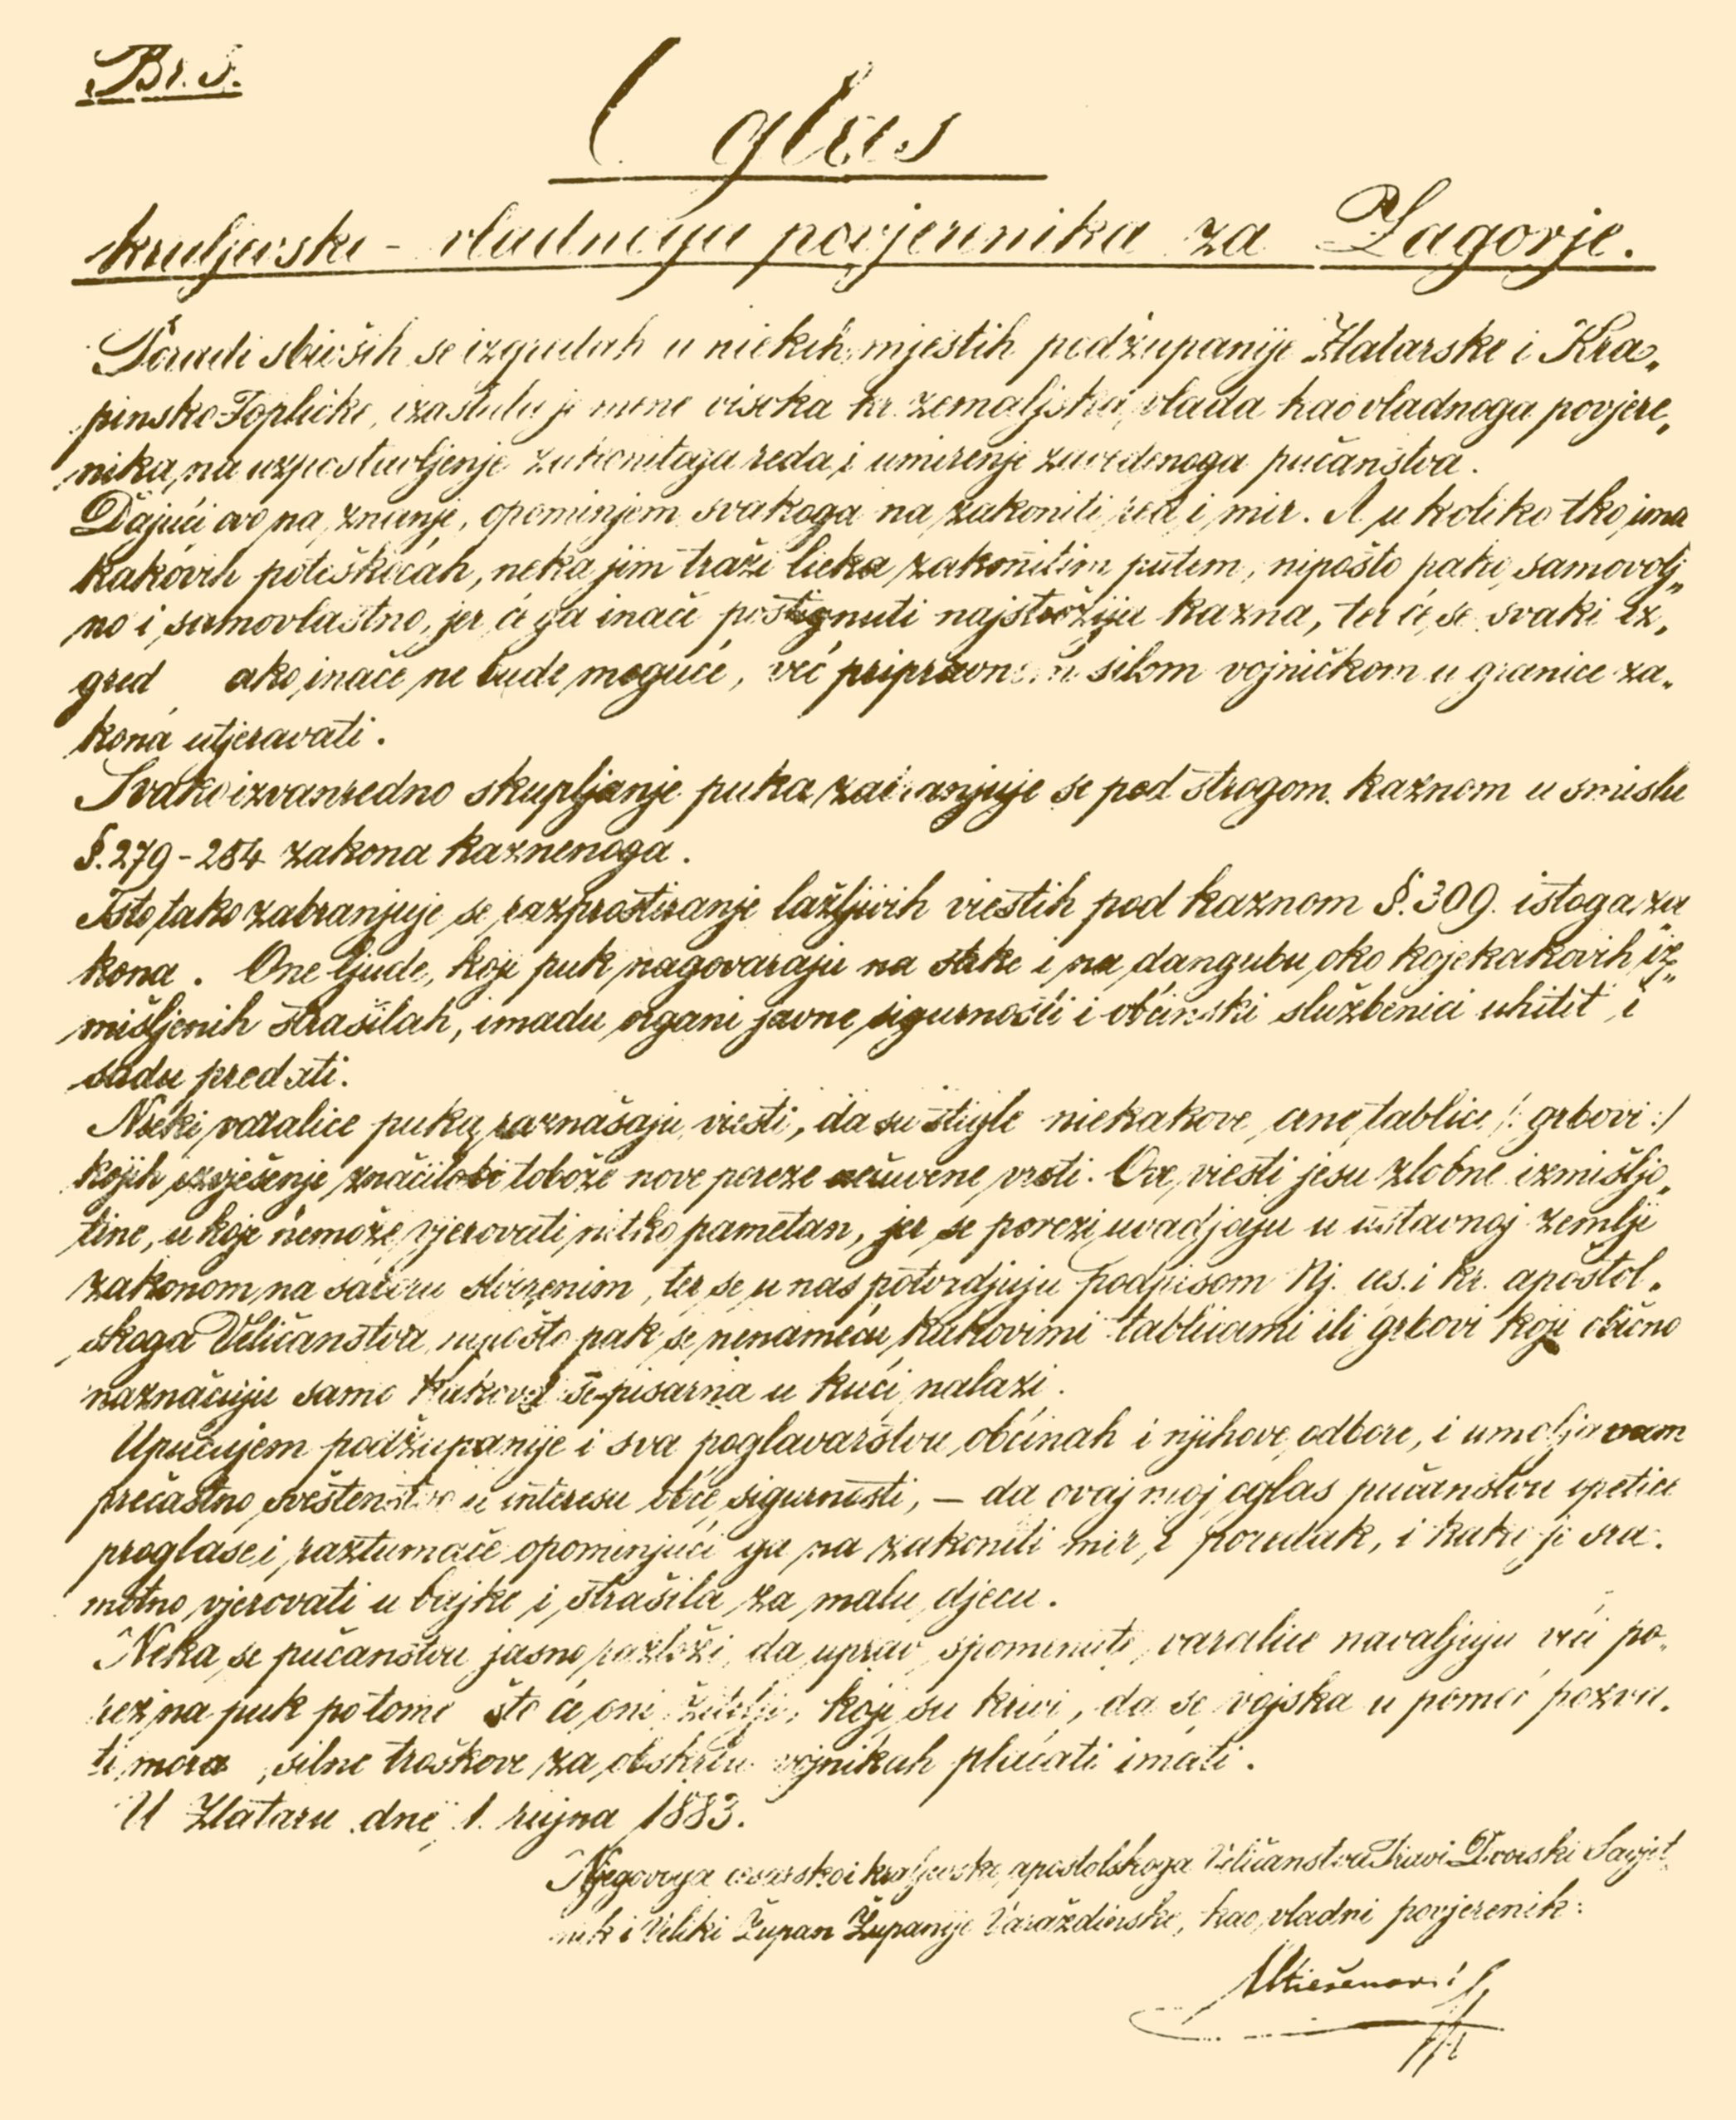 Br. 5.
Oglas
kraljevsko - vladnoga povjerenika za Zagorje.
Poradi sbivših se izgredah u niekih mjestih podžupanije Zlatarske i Kra„
pinsko-Topličke, izaslala je mene visoka kr. zemaljska vlada kao vladnoga povjere„
nika na uzpostavljenje zakonitoga reda i umirenje zavedenoga pučanstva.
Dajući ovo na znanje, opominjem svakoga na zakoniti red i mir. A u koliko tko ima
kakovih poteškoćah, neka jim traži lieka zakonitim putem, nipošto pako samovolj„
no i samovlastno, jer će ga inače postignuti najstrožija kazna, ter će se svaki iz„
gred ako inače ne bude moguće, već pripravnom silom vojničkom u granice za„
kona utjeravati.
Svako izvanredno skupljanje puka zabranjuje se pod strogom kaznom u smislu
§. 279 - 284 zakona kaznenoga.
Isto tako zabranjuje se razprostiranje lažljivih viestih pod kaznom §. 309. istoga za
kona. One ljude, koji puk nagovaraju na strke i na dangubu oko kojekakovih iz„
mišljenih strašilah, imadu organi javne sigurnosti i obćinski službenici uhitit i
sudu predati.
Nieki varalice puka raznašaju viesti, da su stigle niekakove crne tablice /: grbovi :/
kojih izvješenje značilobi tobože nove poreze nečuvene vrsti. Ove viesti jesu zlobne izmišljo„
tine, u koje nemože vjerovati nitko pametan, jer se porezi uvadjaju u ustavnoj zemlji
zakonom na saboru stvorenim, ter se u nas potvrdjuju podpisom Nj. ces. i kr. apostol„
skoga Veličanstva, nipošto pak se nenameću kakovimi tablicami ili grbovi koji obično
naznačuju samo kakova se pisarna u kući nalazi.
Upućujem podžupanije i sva poglavarstva obćinah i njihove odbore, i umoljavam
prečastno sveštenstvo u interesu obće sigurnosti, — da ovaj moj oglas pučanstvu opetice
proglase i raztumače opominjući ga na zakoniti mir i poredak, i kako je sra„
motno vjerovati u bajke i strašila za malu djecu.
Neka se pučanstvu jasno razloži, da uprav spomenute varalice navaljuju veći po„
rez na puk potome što će oni žitelji, koji su krivi, da se vojska u pomoć pozva„
ti mora, silne troškove za obskrbu vojnikah plaćati imati.
U Zlataru dne 1. rujna 1883.
Njegovoga cesarsko i kraljevsko apostolskoga Veličanstva Pravi Dvorski Savjet„
nik i Veliki Župan Županije Varaždinske, kao vladni povjerenik: